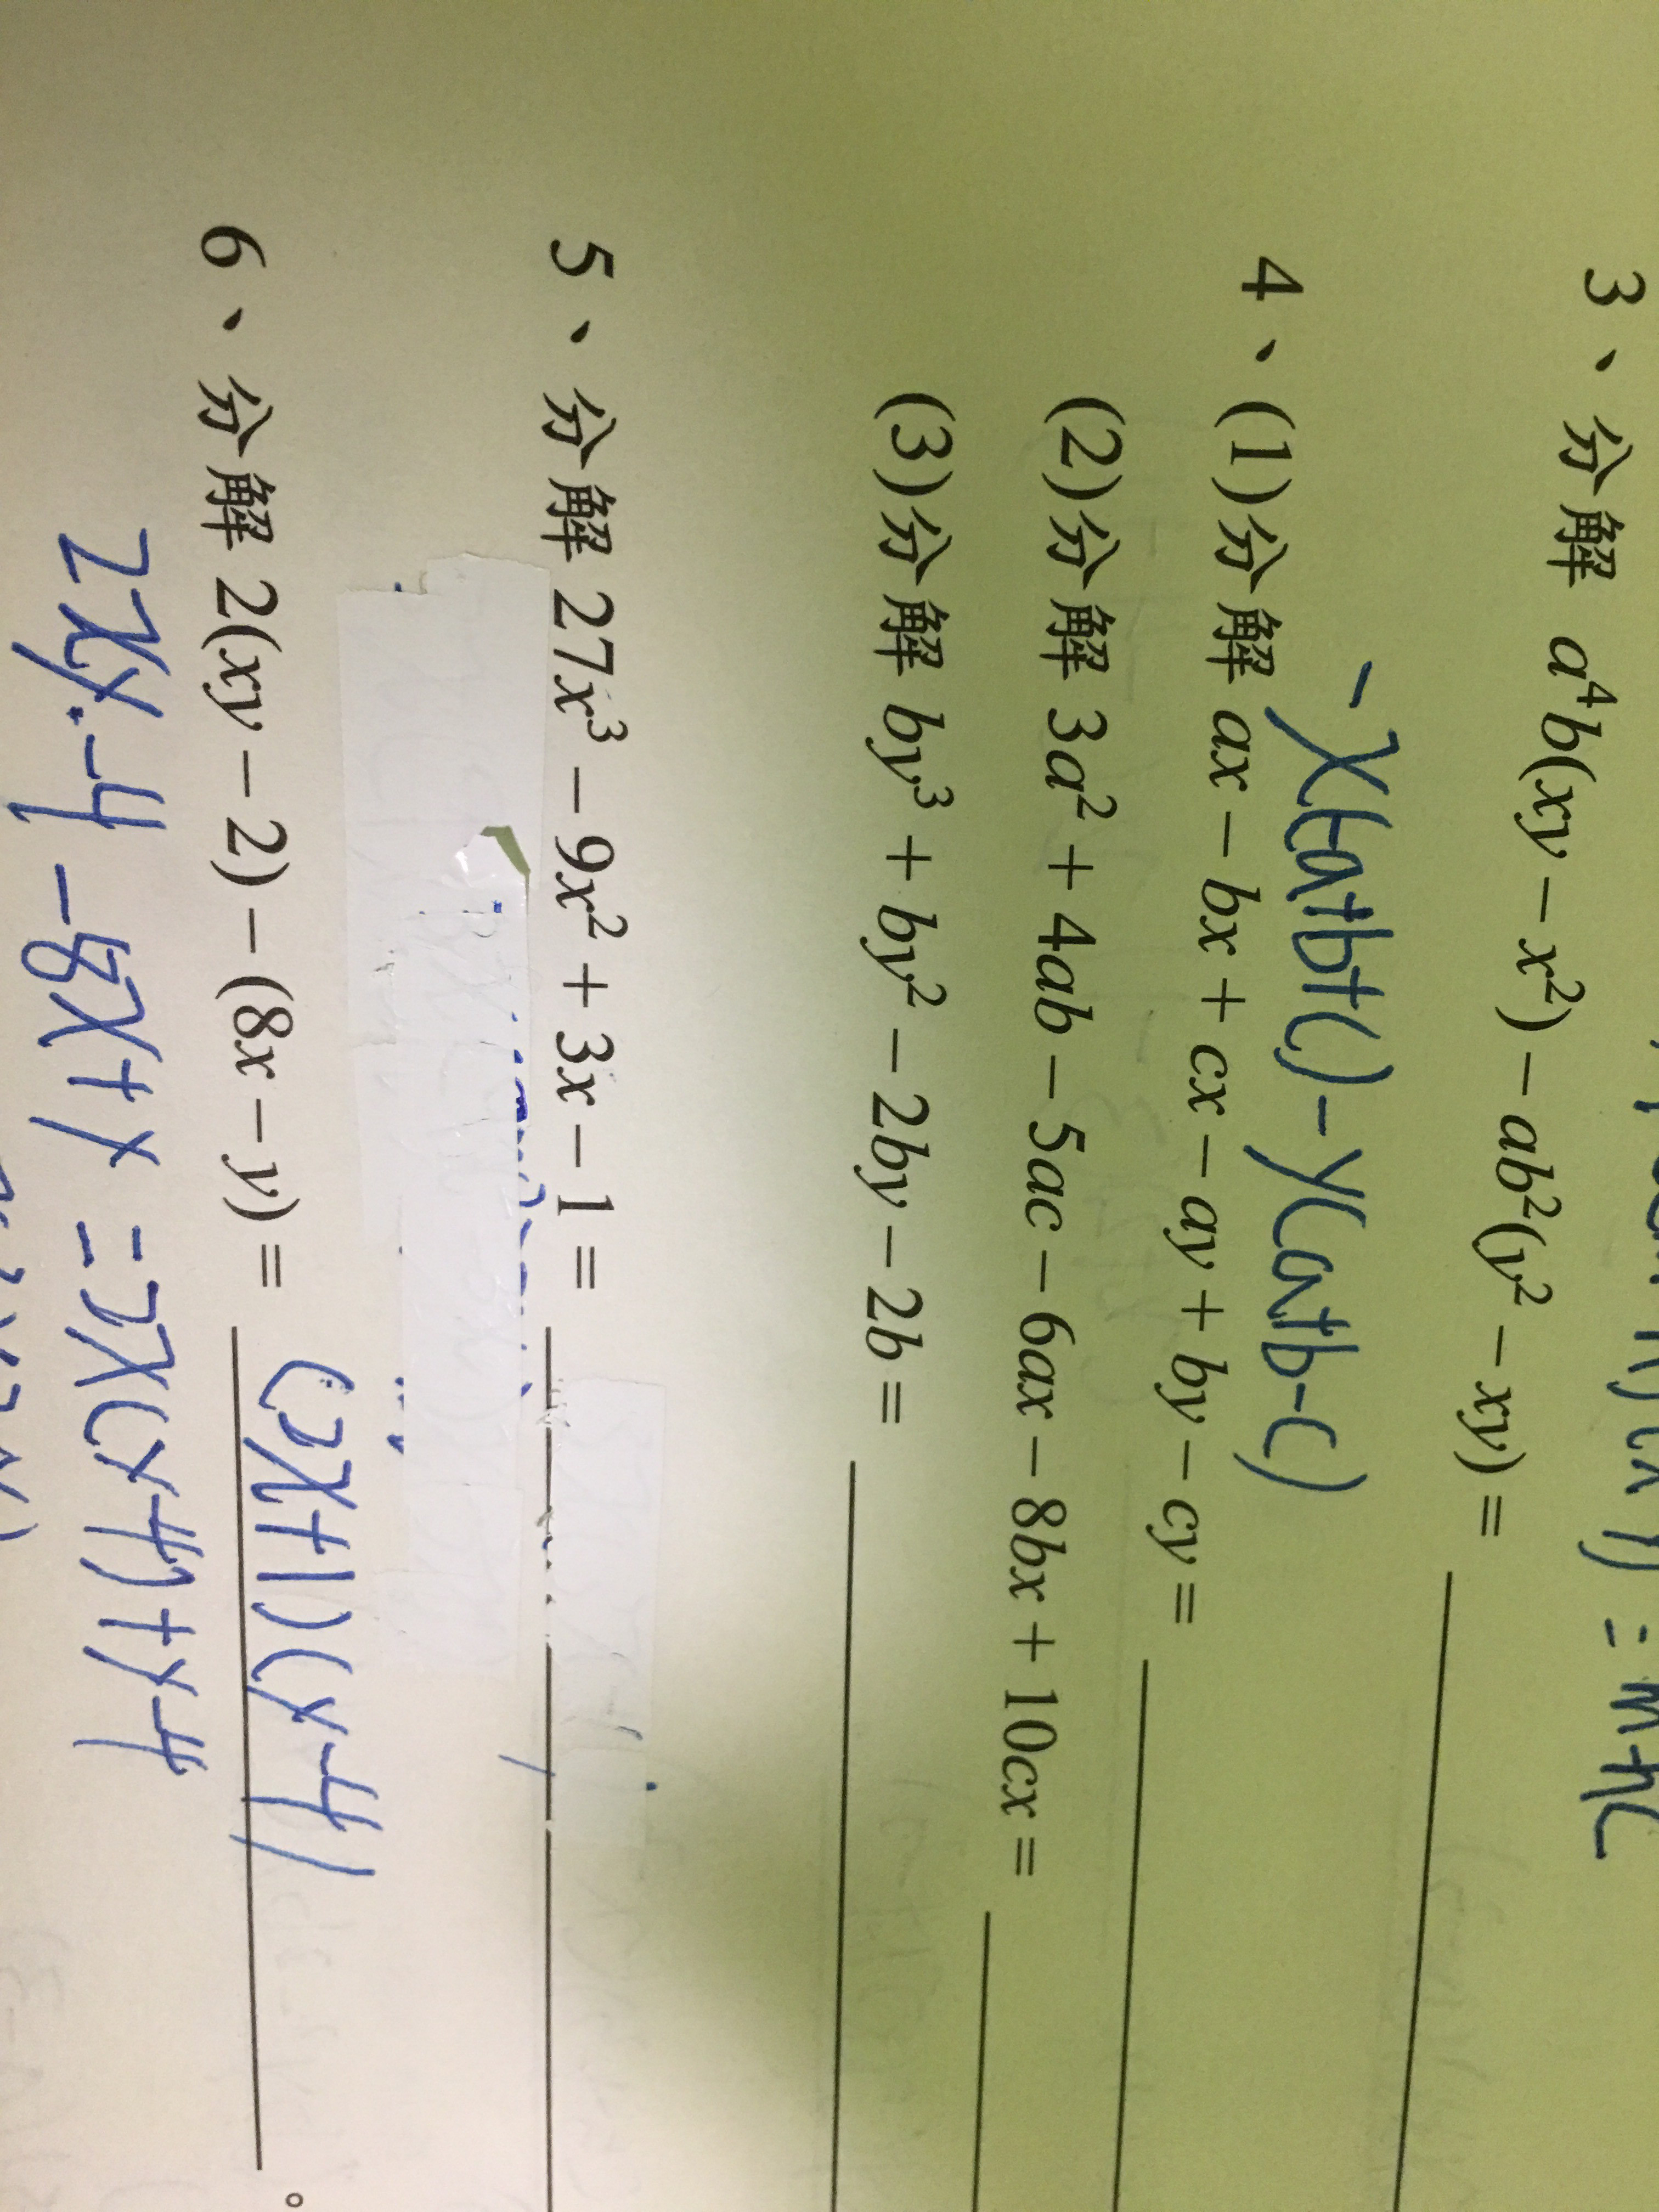 = m+n(
3、分解 a⁴b(xy − x²) − ab²(y² − xy) =
-x(-a+b+c)-y(a+b-c)
4、(1)分解 ax − bx + cx − ay + by − cy =
(2)分解 3a² + 4ab − 5ac − 6ax − 8bx + 10cx =
(3)分解 by³ + by² − 2by − 2b =
5、分解 27x³ − 9x² + 3x − 1 =
6、分解 2(xy − 2) − (8x − y) = (2x+1)(y-4) 。
2xy-4-8x+y = 2x(y-4)+y-4